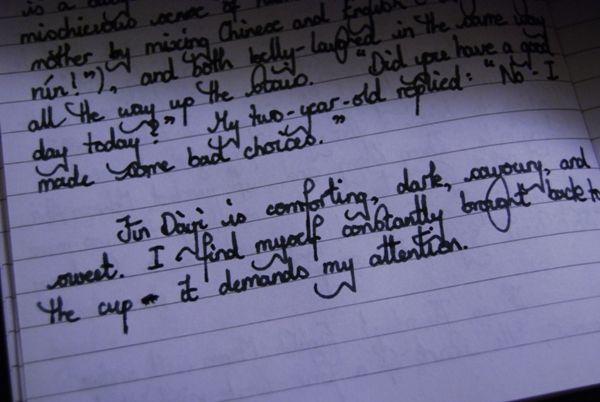 is a
mischievous sense of
mother by mixing Chinese and English
nín!"), and both belly-laughed in the same way
all the way up the stairs. "Did you have a good
day today?" My two-year-old replied: "No - I
made some bad choices."
Jīn Dàyì is comforting, dark, savoury, and
sweet. I find myself constantly brought back to
the cup - it demands my attention.